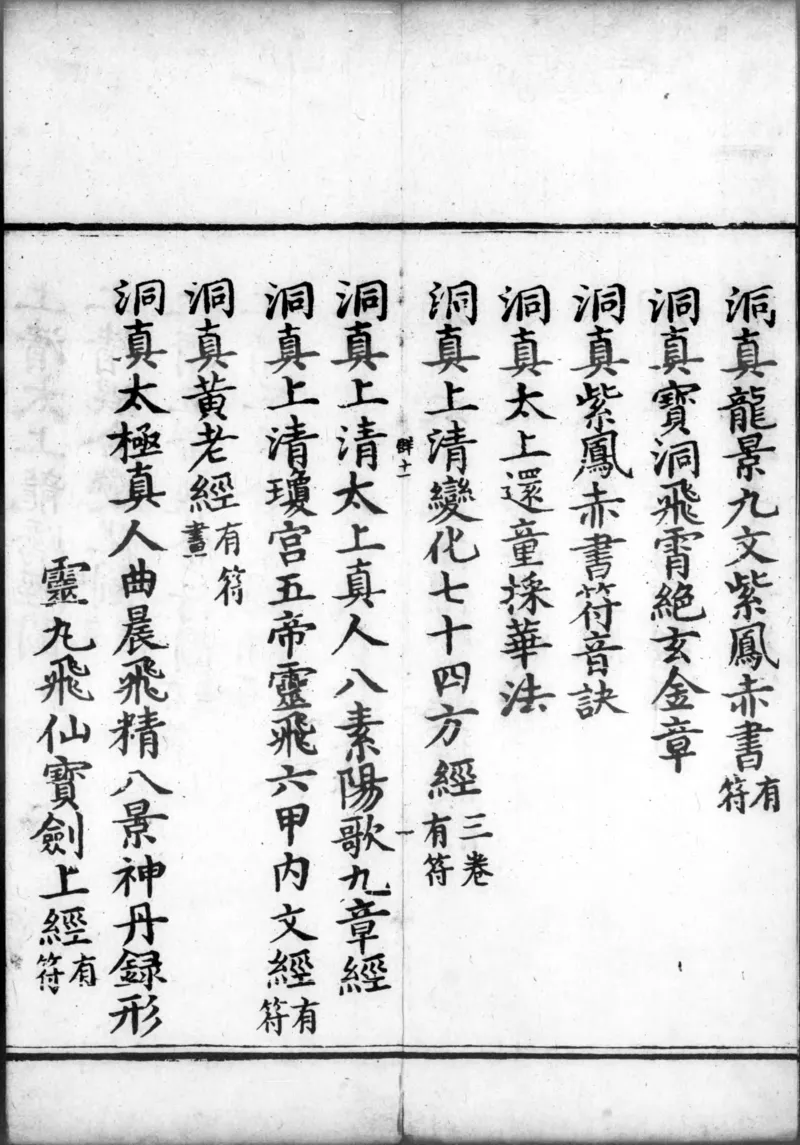 洞真龍景九文紫鳳赤書有符
洞真寶洞飛霄絕玄金章
洞真紫鳳赤書符音訣
洞真太上還童採華法
洞真上清變化七十四方經三卷有符
群十一
一
洞真上清太上真人八素陽歌九章經
洞真上清瓊宮五帝靈飛六甲內文經有符
洞真黃老經有符畫
洞真太極真人曲晨飛精八景神丹録形
靈九飛仙寶劍上經有符